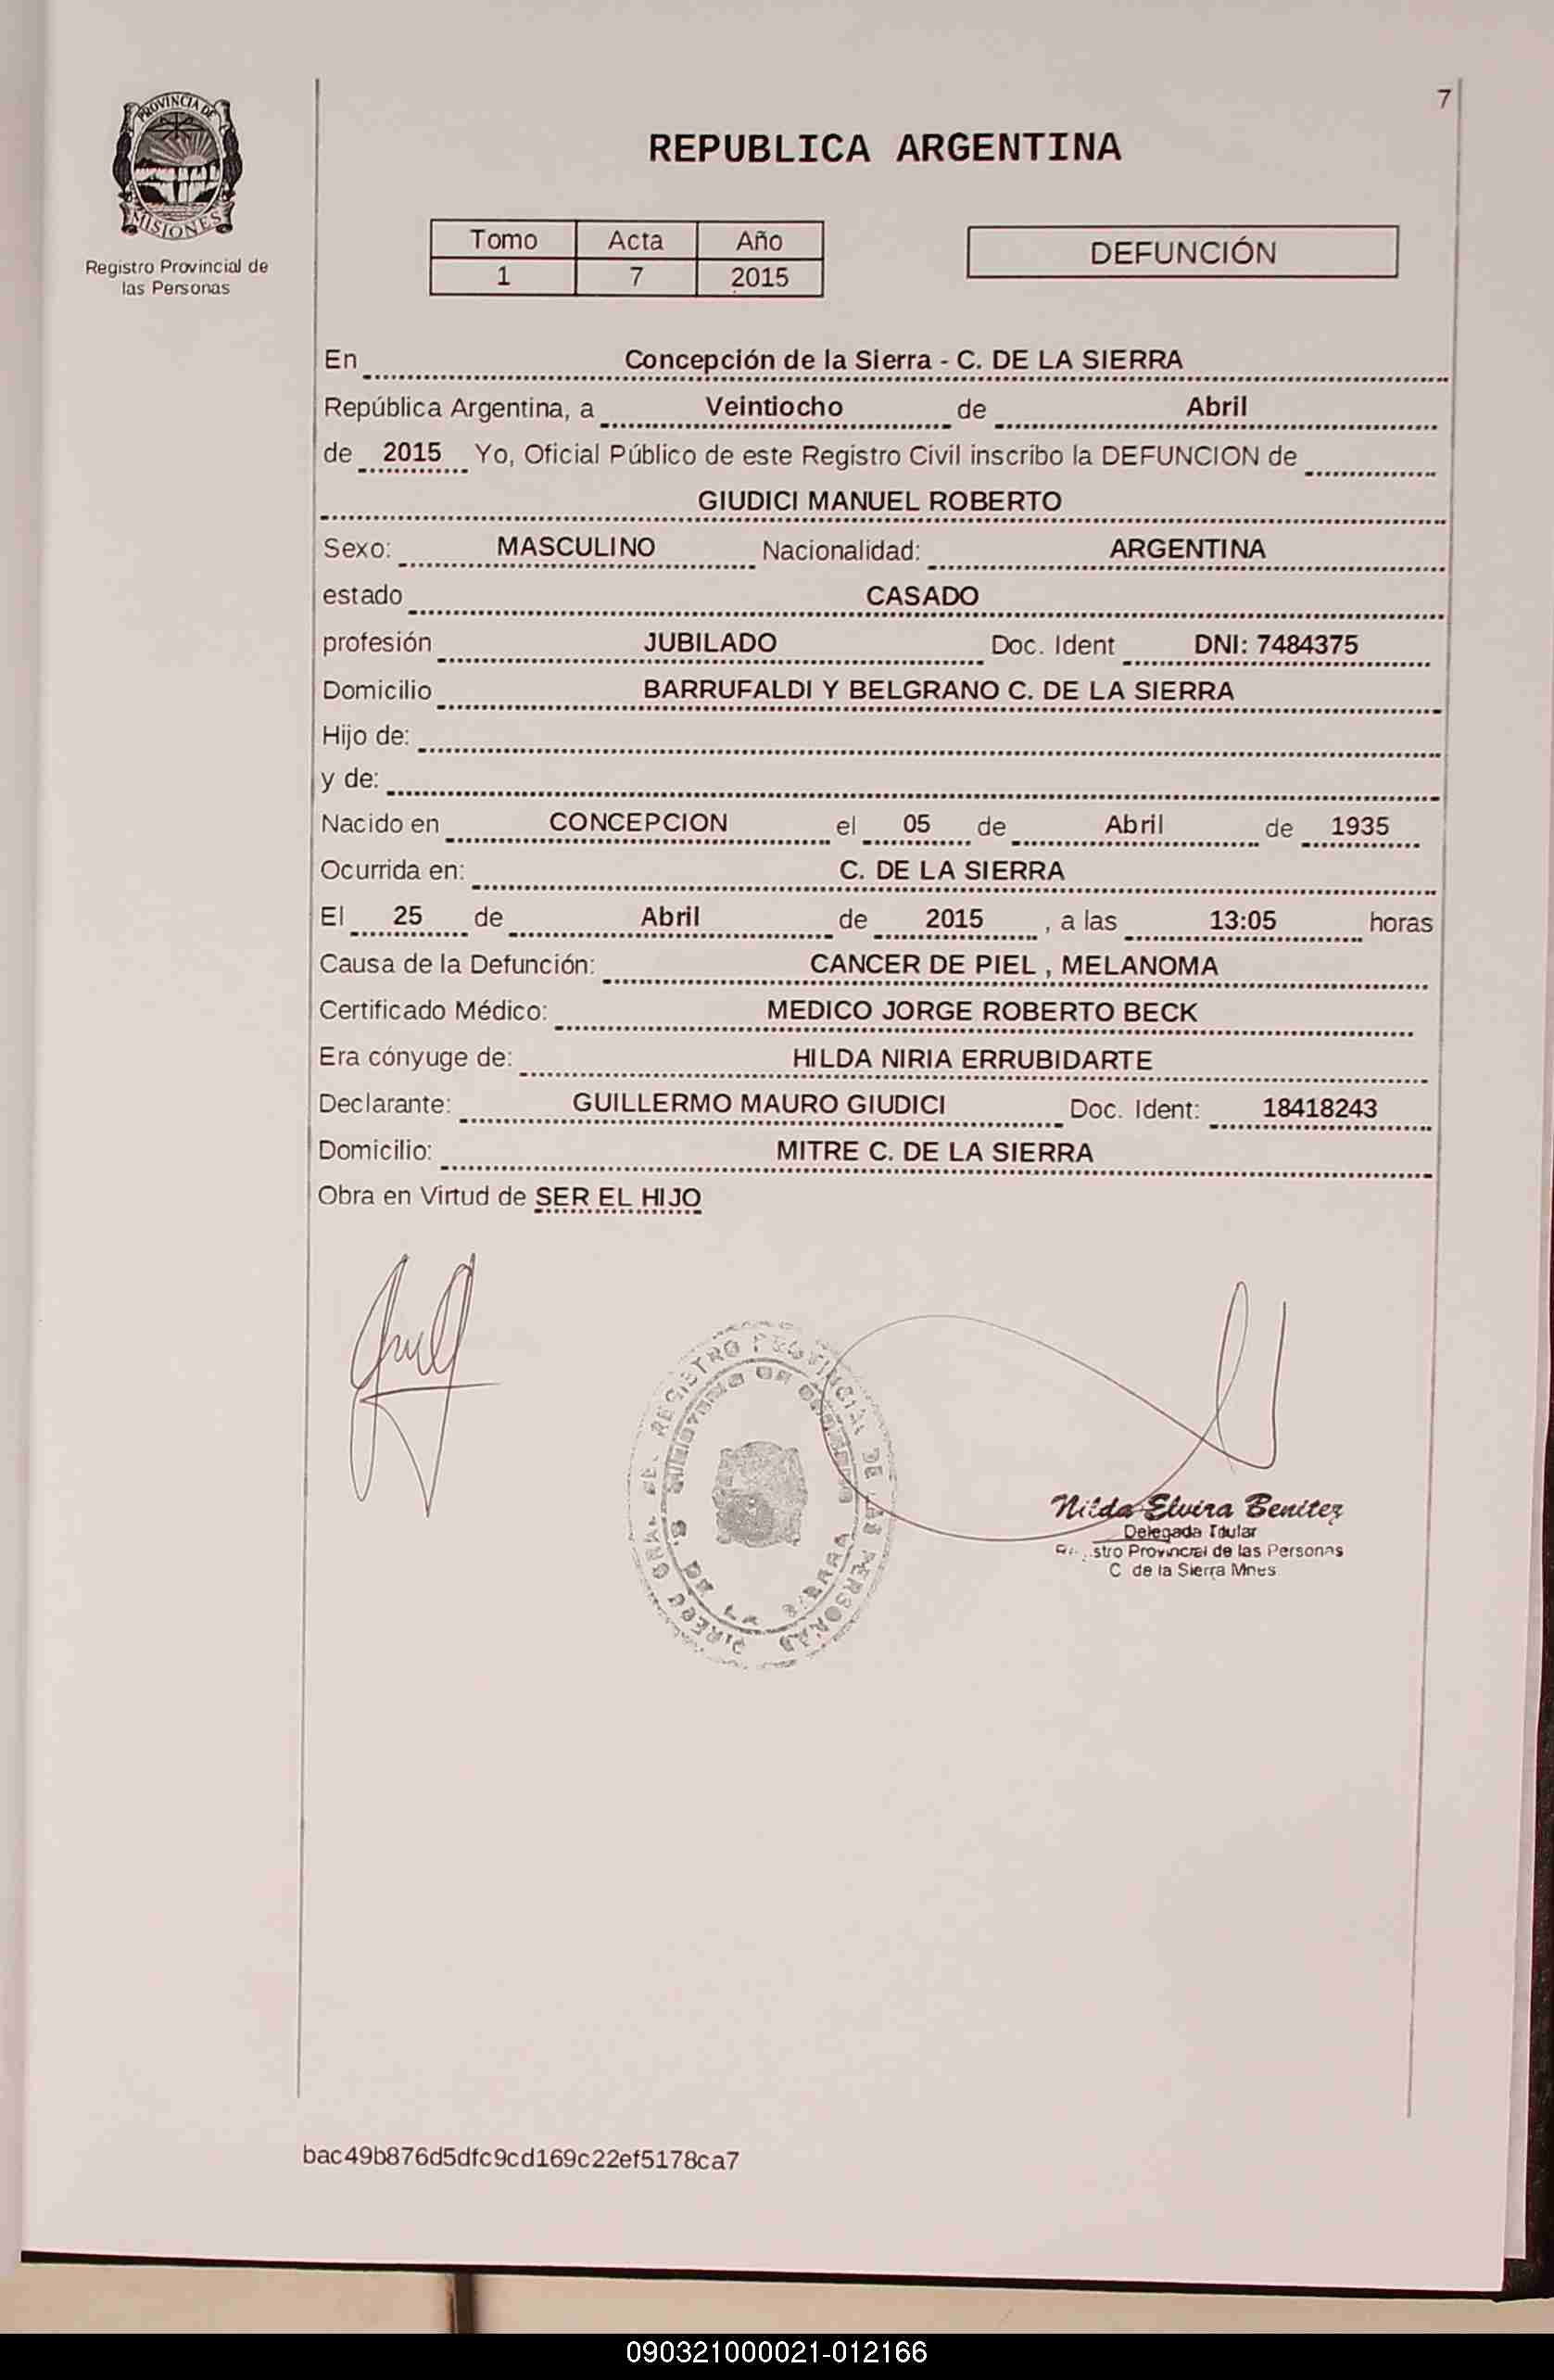 7
PROVINCIA DE
MISIONES
Registro Provincial de
las Personas
REPUBLICA ARGENTINA
Tomo Acta Año
1 7 2015
DEFUNCIÓN
En Concepción de la Sierra - C. DE LA SIERRA
República Argentina, a Veintiocho de Abril
de 2015 Yo, Oficial Público de este Registro Civil inscribo la DEFUNCION de
GIUDICI MANUEL ROBERTO
Sexo: MASCULINO Nacionalidad: ARGENTINA
estado CASADO
profesión JUBILADO Doc. Ident DNI: 7484375
Domicilio BARRUFALDI Y BELGRANO C. DE LA SIERRA
Hijo de:
y de:
Nacido en CONCEPCION el 05 de Abril de 1935
Ocurrida en: C. DE LA SIERRA
El 25 de Abril de 2015 , a las 13:05 horas
Causa de la Defunción: CANCER DE PIEL , MELANOMA
Certificado Médico: MEDICO JORGE ROBERTO BECK
Era cónyuge de: HILDA NIRIA ERRUBIDARTE
Declarante: GUILLERMO MAURO GIUDICI Doc. Ident: 18418243
Domicilio: MITRE C. DE LA SIERRA
Obra en Virtud de SER EL HIJO
DIRECC GRAL DEL REGISTRO PROVINCIAL DE LAS PERSONAS
DE LA SIERRA
Nilda Elvira Benítez
Delegada Titular
Provincial de las Personas
C de la Sierra Mnes
bac49b876d5dfc9cd169c22ef5178ca7
090321000021-012166